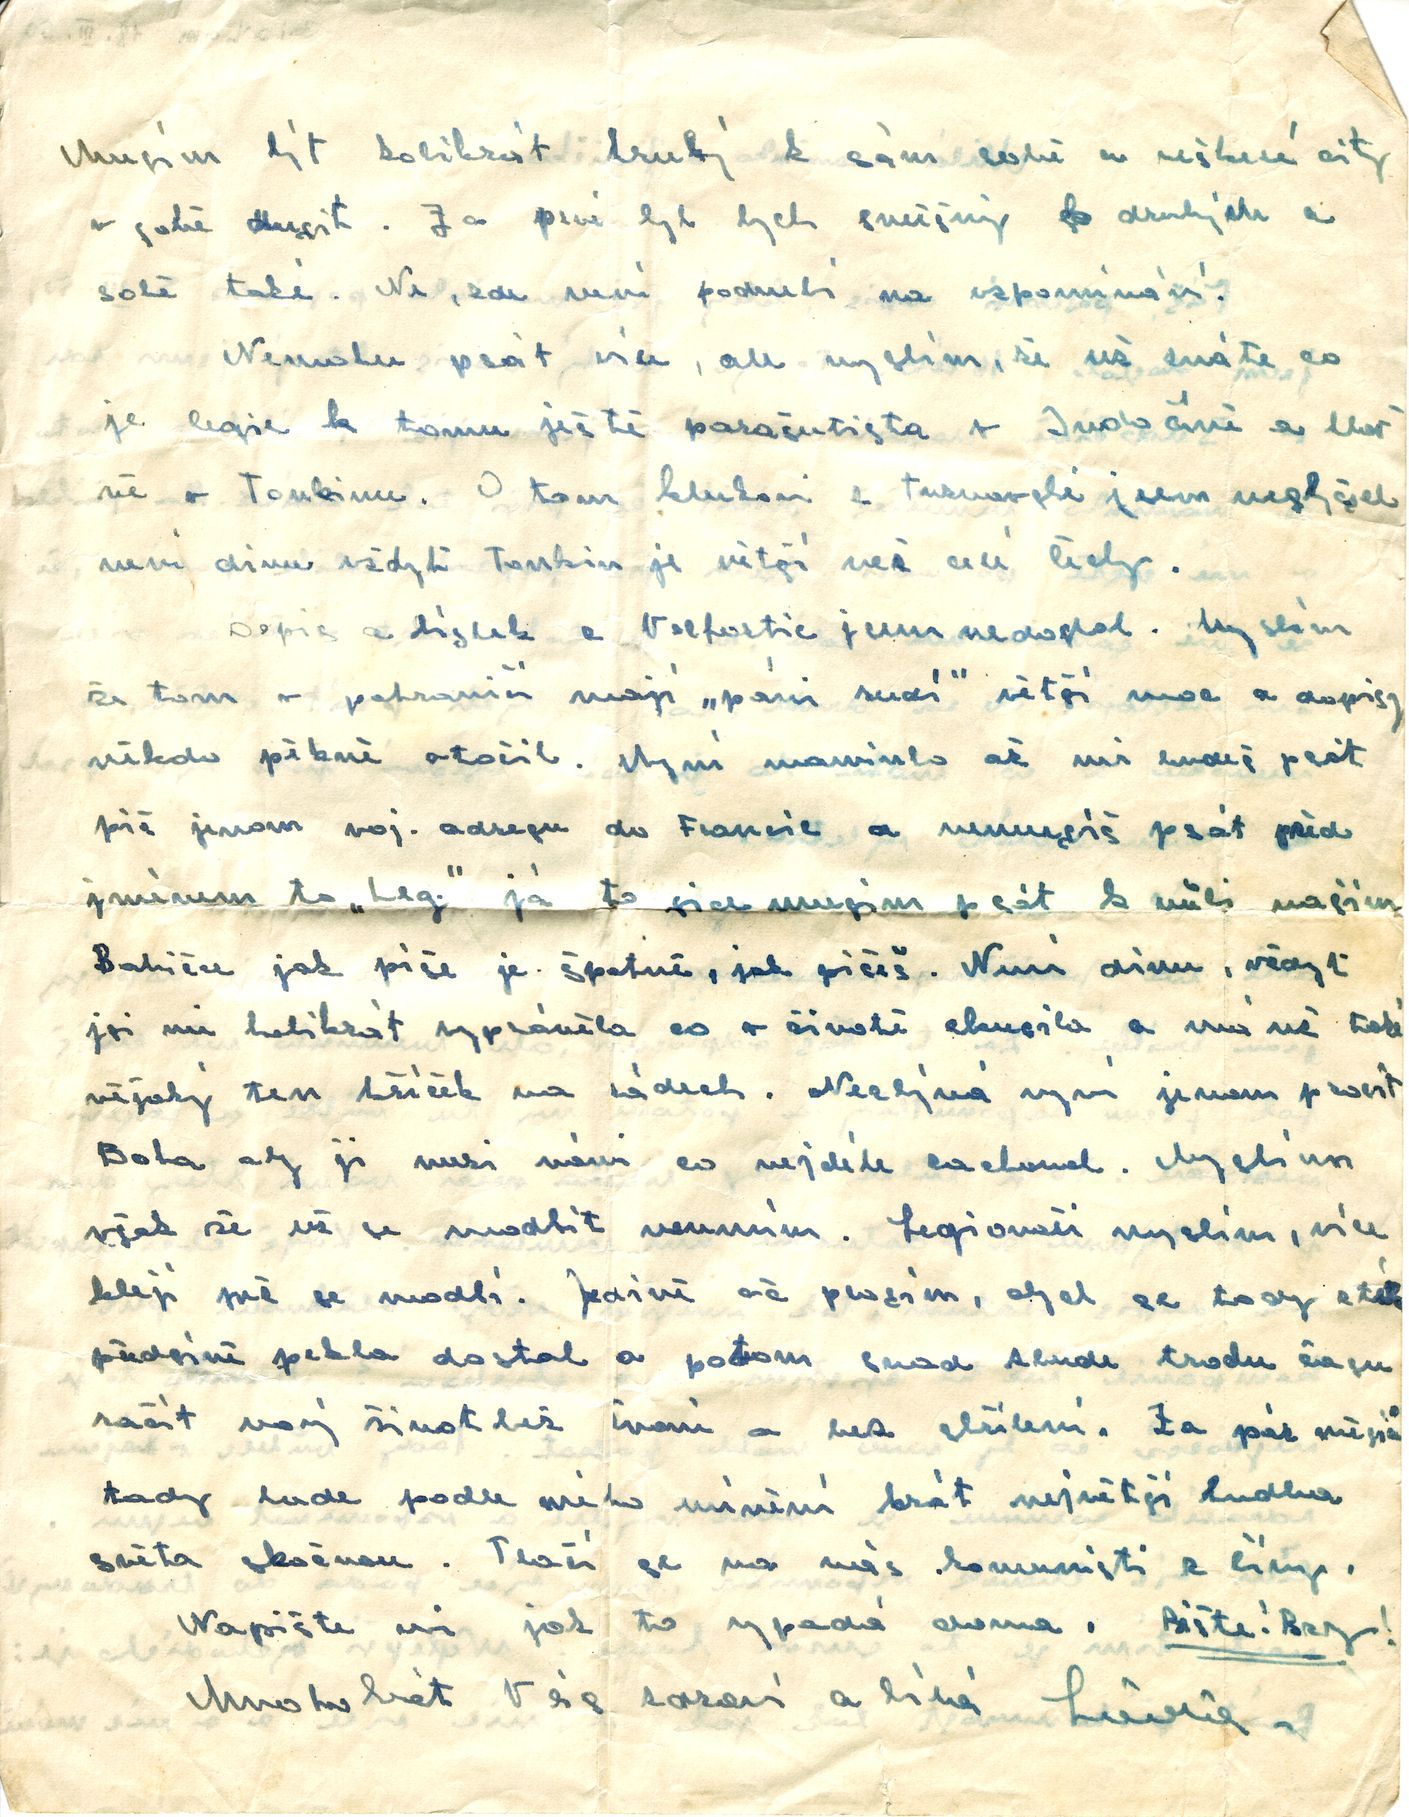 Musím být kolikrát hrubý k sám sobě a veškeré city
v sobě dusit. Za prvé byl bych směšný druhých a
sobě také. Ne, zde není podnebí na vzpomínání.
Nemohu psát více, ale myslím, že už znáte co
je legie k tomu ještě parašutista v Indočíně a hlav
ně v Tonkinu. O tom klukovi z jsem neslyšel
není divu vždyť Tonkin je větší než celé Čechy.
Dopis a lístek z jsem nedostal. Myslím
že tam v pohraničí mají „páni rudí" větší moc a dopisy
někdo pěkně otočil. Nyní maminko až mi budeš psát
piš jenom voj. adresu do Francie a nemusíš psát před
jménem to „Leg." já to sice musím psát k vůli našim
Babičce jak píše je špatně, jak píšeš. Není divu, vždyť
jsi mi kolikrát vyprávěla co v životě zkusila a má už také
nějaký ten křížek na zádech. Nezbývá nyní jenom prosit
Boha aby ji mezi námi co nejdéle zachoval. Myslím
však že už se modlit neumím. Legionáři myslím, více
klejí než se modlí. Jedině až prosím, abych se tady z této
předsíně pekla dostal a potom snad zbude trochu času
začít nový život bez řvaní a bez střílení. Za pár měsíců
tady bude podle mého mínění hrát největší hudba
světa skočnou. Tlačí se na nás komunisti z Číny.
Napište mi jak to vypadá doma. Pište! Brzy!
Mnohokrát Vás zdraví a líbá